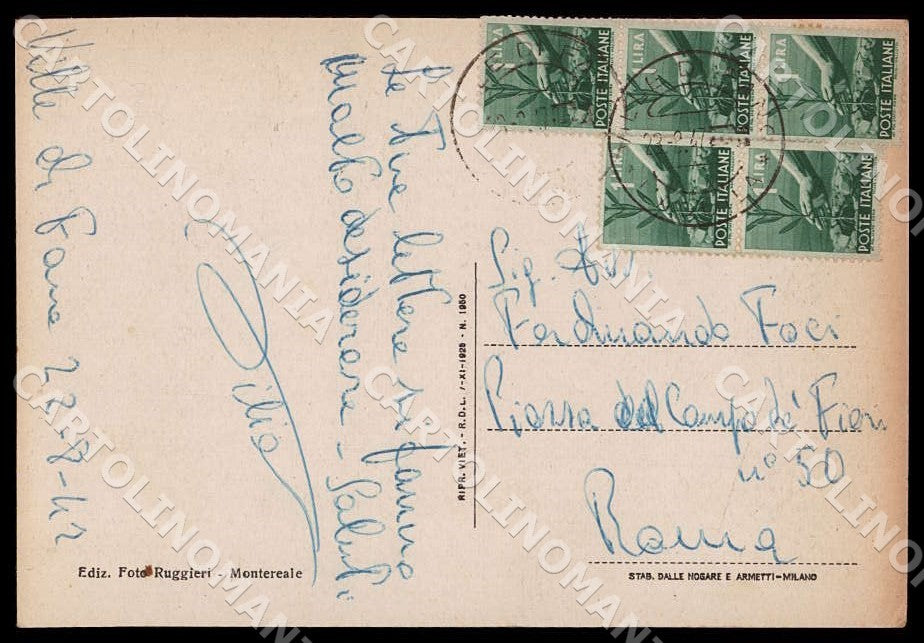 Ville di Fano 22-8-47
Le Tue lettere si fanno
molto desiderare - Saluti
Sig. Avv.
Ferdinando Foci
Piazza del Campo de' Fiori
n° 50
Roma
1 LIRA
POSTE ITALIANE
1 LIRA
POSTE ITALIANE
1 LIRA
POSTE ITALIANE
1 LIRA
POSTE ITALIANE
1
POSTE ITALIANE
RIPR. VIET. - R.D.L. 7-XI-1925 - N. 1950
Ediz. Foto Ruggieri - Montereale
STAB. DALLE NOGARE E ARMETTI-MILANO
CARTOLINOMANIA
CARTOLINOMANIA
CARTOLINOMANIA
CARTOLINOMANIA
CARTOLINOMANIA
CARTOLINOMANIA